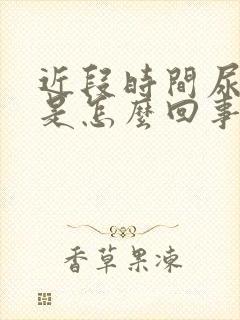 近段時間尿
是怎麼回事
香草果凍